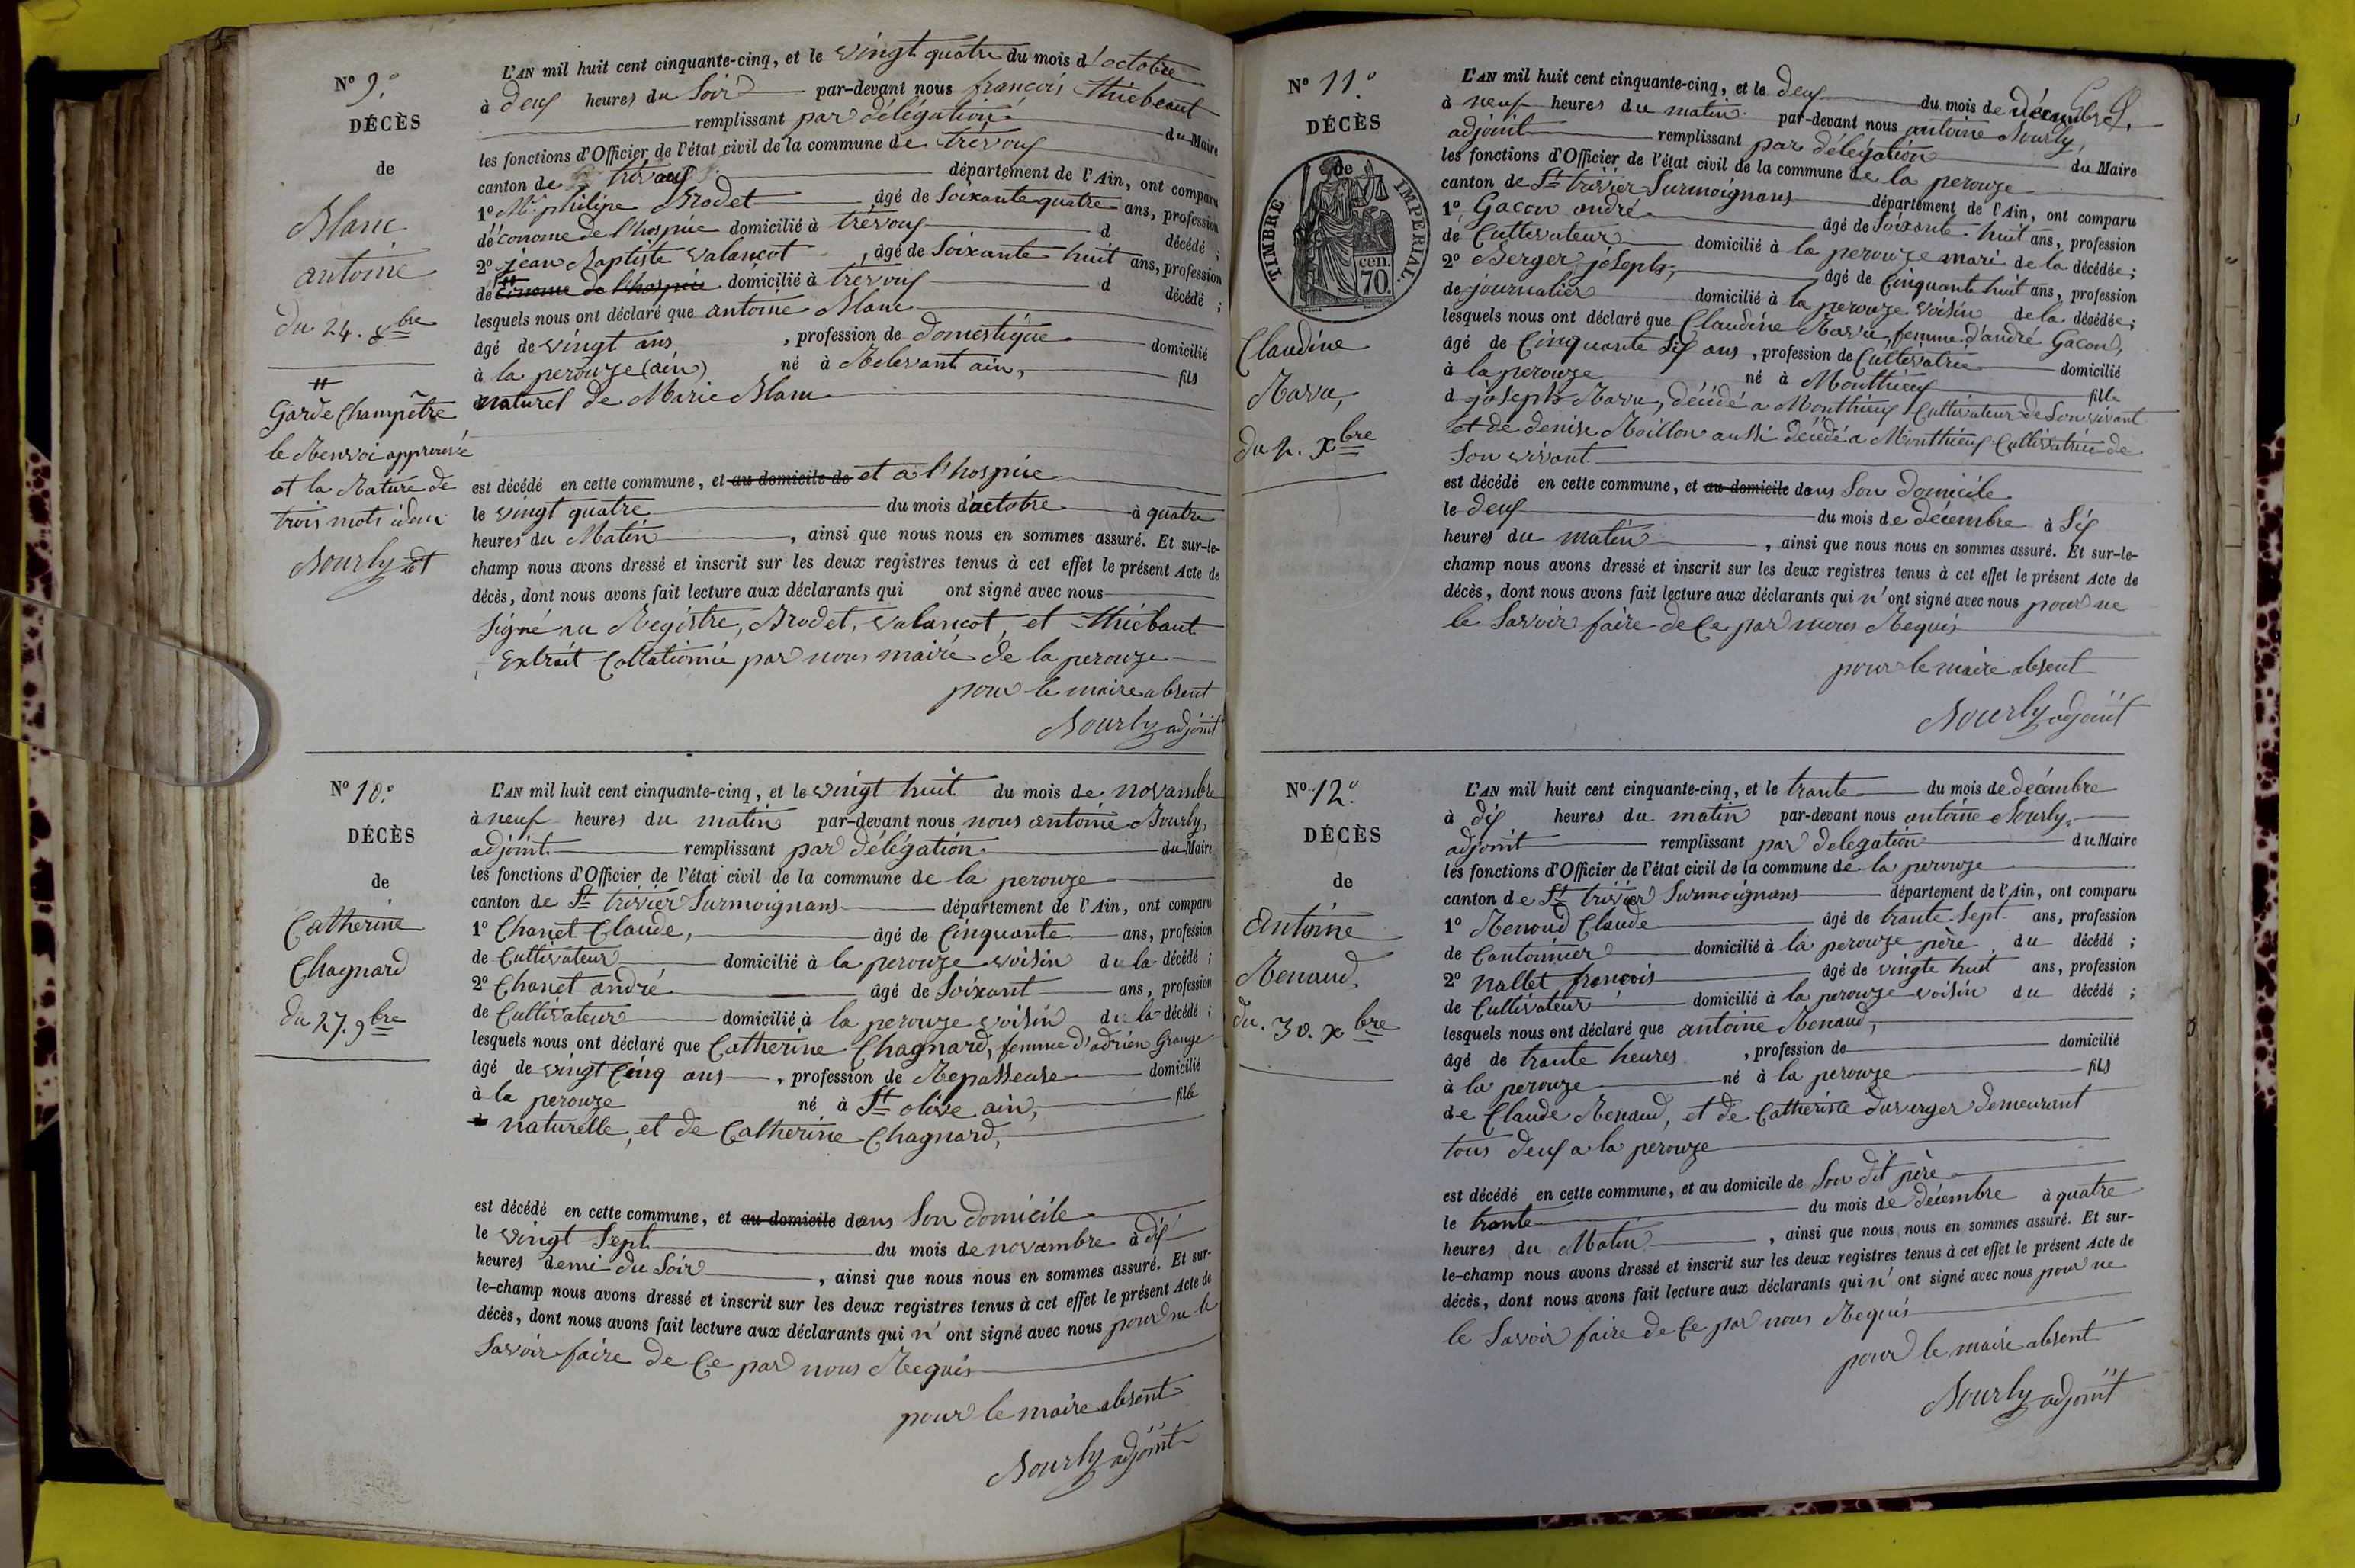 N° 9°
DÉCÈS
de
Blanc
antoine
du 24. 8bre
#
Garde Champêtre
le Renvoi approuvé
et la Rature de
trois mots idem
Bourly adt
L'AN mil huit cent cinquante-cinq, et le vingt quatre du mois d'octobre
à deux heures du Soir par-devant nous françois thiebaut
remplissant par délégation du Maire
les fonctions d'Officier de l'état civil de la commune de trévoux
canton de trévoux département de l'Ain, ont comparu
1° Mr philipe Brodet âgé de Soixante quatre ans, profession
d'économe de l'hospice domicilié à trévoux d décédé ;
2° jean Baptiste valancot, âgé de Soixante huit ans, profession
de # Econome de l'hospice domicilié à trévoux d décédé ;
lesquels nous ont déclaré que antoine Blanc
âgé de vingt ans, profession de domestique domicilié
à la perouze (ain) né à Relevant ain, fils
naturel de Marie Blanc
est décédé en cette commune, et au domicile de et a l'hospice
le vingt quatre du mois d'octobre à quatre
heures du Matin, ainsi que nous nous en sommes assuré. Et sur-le-
champ nous avons dressé et inscrit sur les deux registres tenus à cet effet le présent Acte de
décès, dont nous avons fait lecture aux déclarants qui ont signé avec nous
Signé au Registre, Brodet, valancot, et thiébaut
Extrait Collationné par nous maire de la perouze
pour le maire absent
Bourly adjoint
N° 10°
DÉCÈS
de
Catherine
Chagnard
du 27. 9bre
L'AN mil huit cent cinquante-cinq, et le vingt huit du mois de novambre
à neuf heures du matin par-devant nous nous antoine Bourly,
adjoint remplissant par délégation du Maire
les fonctions d'Officier de l'état civil de la commune de la perouze
canton de St trivier Surmoignans département de l'Ain, ont comparu
1° Chanet Claude, âgé de Cinquante ans, profession
de Cultivateur domicilié à la perouze voisin de la décédé ;
2° Chanet andré âgé de Soixant ans, profession
de Cultivateur domicilié à la perouze voisin de la décédé ;
lesquels nous ont déclaré que Catherine Chagnard, femme d'adrien Grange
âgé de vingt Cinq ans, profession de Repasseuse domicilié
à la perouze né à St olive ain, fille
naturelle, et de Catherine Chagnard,
est décédé en cette commune, et au domicile dans Son domicile
le vingt Sept du mois de novambre à dix
heures demi du Soir, ainsi que nous nous en sommes assuré. Et sur-
le-champ nous avons dressé et inscrit sur les deux registres tenus à cet effet le présent Acte de
décès, dont nous avons fait lecture aux déclarants qui n'ont signé avec nous pour ne le
Savoir faire de Ce par nous Requis
pour le maire absent
Bourly adjoint
N° 11°
DÉCÈS
de
TIMBRE IMPERIAL.
cen.
70.
Claudine
Ravu,
du 2. Xbre
L'AN mil huit cent cinquante-cinq, et le deux du mois de décembre
à neuf heures du matin par-devant nous antoine Bourly,
adjoint remplissant par délégation du Maire
les fonctions d'Officier de l'état civil de la commune de la perouze
canton de St trivier Surmoignans département de l'Ain, ont comparu
1° Gacon andré âgé de Soixante huit ans, profession
de Cultivateur domicilié à la perouze mari de la décédée ;
2° Berger joseph, âgé de Cinquante huit ans, profession
de journalier domicilié à la perouze voisin de la décédée ;
lesquels nous ont déclaré que Claudine Ravu, femme d'andré Gacon,
âgé de Cinquante Six ans, profession de Cultivatrice domicilié
à la perouze né à Monthieux fille
d joseph Ravu, décédé a Monthieux Cultivateur de Son vivant
et de denise Boillon aussi décédé a Monthieux Cultivatrice de
Son vivant
est décédé en cette commune, et au domicile dans Son domicile
le deux du mois de décembre à Six
heures du matin, ainsi que nous nous en sommes assuré. Et sur-le-
champ nous avons dressé et inscrit sur les deux registres tenus à cet effet le présent Acte de
décès, dont nous avons fait lecture aux déclarants qui n'ont signé avec nous pour ne
le Savoir faire de Ce par nous Requis
pour le maire absent
Bourly adjoint
N° 12°
DÉCÈS
de
Antoine
Renaud,
du. 30. Xbre
L'AN mil huit cent cinquante-cinq, et le trante du mois de décembre
à dix heures du matin par-devant nous antoine Bourly,
adjoint remplissant par delegation du Maire
les fonctions d'Officier de l'état civil de la commune de la perouze
canton de St trivier Surmoignans département de l'Ain, ont comparu
1° Renoud Claude âgé de trante Sept ans, profession
de Cantonnier domicilié à la perouze père du décédé ;
2° nallet françois âgé de vingte huit ans, profession
de Cultivateur domicilié à la perouze voisin du décédé ;
lesquels nous ont déclaré que antoine Renaud,
âgé de trante heures, profession de domicilié
à la perouze né à la perouze fils
de Claude Renaud, et de Catherine duverger demeurant
tous deux a la perouze
est décédé en cette commune, et au domicile de Son dit père
le trante du mois de décembre à quatre
heures du Matin, ainsi que nous nous en sommes assuré. Et sur-
le-champ nous avons dressé et inscrit sur les deux registres tenus à cet effet le présent Acte de
décès, dont nous avons fait lecture aux déclarants qui n'ont signé avec nous pour ne
le Savoir faire de Ce par nous Requis
pour le maire absent
Bourly adjoint